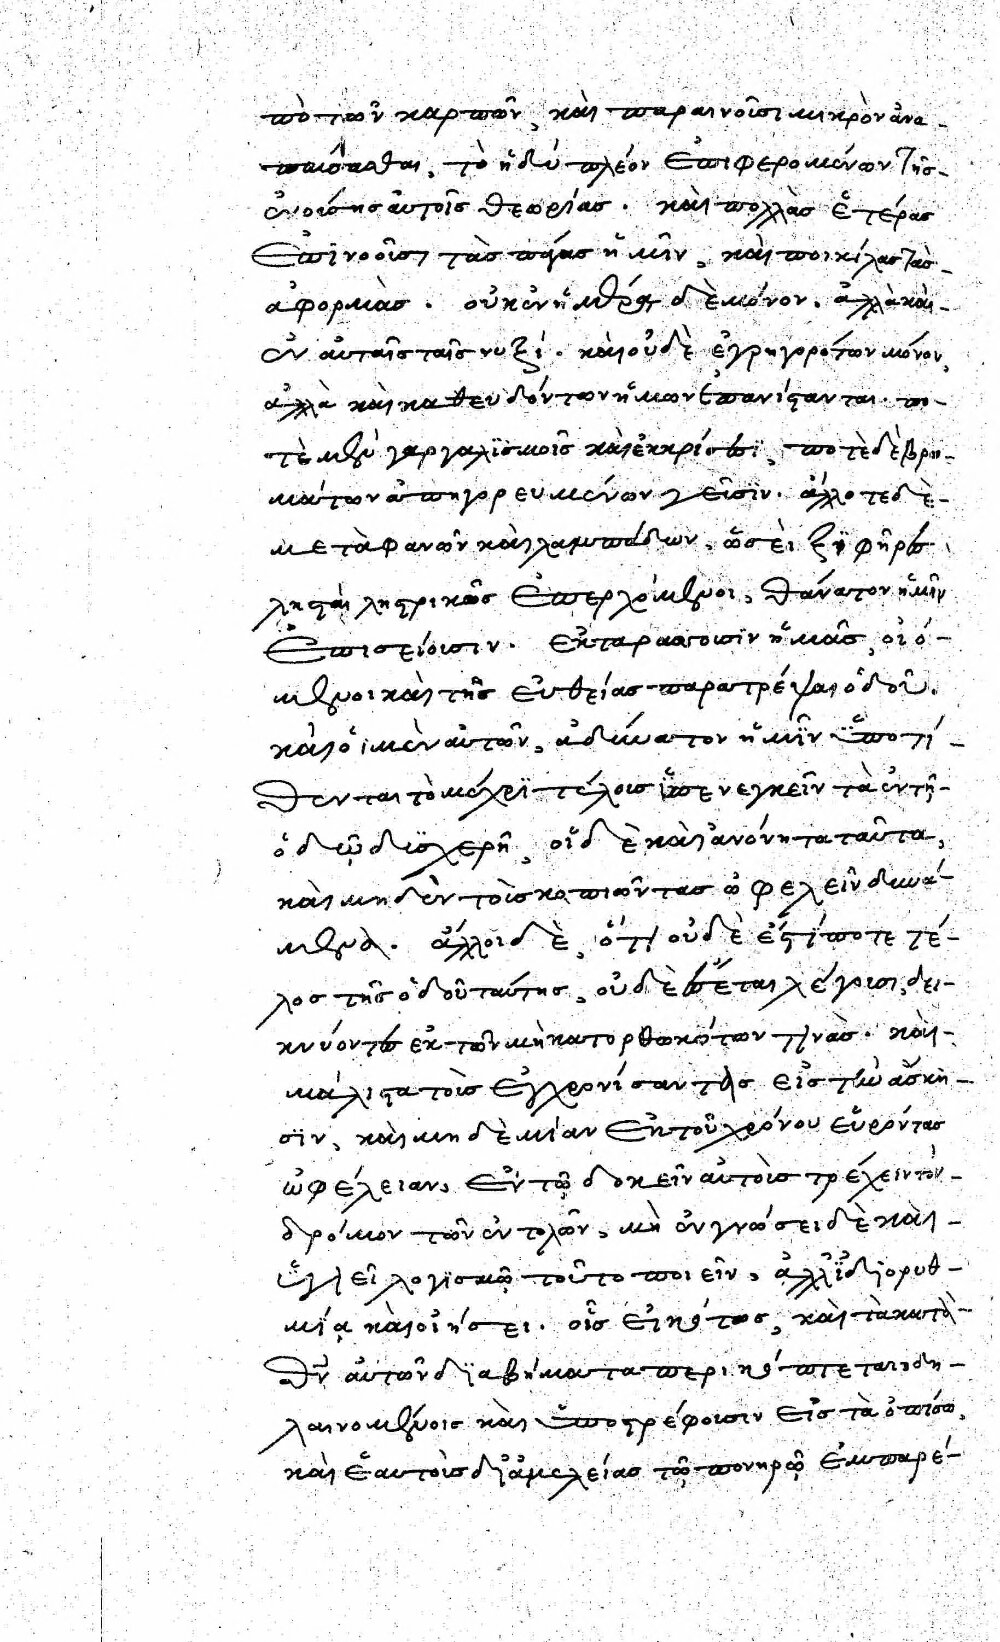 πὸ τῶν καρπῶν, καὶ παραινοῦσι μικρὸν ἀνα-
παύσασθαι, τὸ ἡδὺ πλέον ἐπιφερομένων τῆς
ἐνούσης αὐτοῖς θεωρίας. καὶ πολλὰς ἑτέρας
ἐπινοοῦσι τὰς πάγας ἡμῖν, καὶ ποικίλας τὰς
ἀφορμάς. οὐκ ἐν ἡμέρᾳ δὲ μόνον, ἀλλὰ καὶ
ἐν αὐταῖς ταῖς νυξί. καὶ οὐδὲ ἐγρηγορότων μόνον,
ἀλλὰ καὶ καθευδόντων ἡμῶν ἐπανίστανται. πο-
τὲ μὲν γαργαλισμοῖς καὶ ἐκκρίσεσι, ποτὲ δὲ βρω-
μάτων ἀπηγορευμένων γεῦσιν. ἄλλοτε δὲ
μετὰ φανῶν καὶ λαμπάδων, ὡσεὶ ξιφήρεις
λησταὶ ληστρικῶς ἐπερχόμενοι, θάνατον ἡμῖν
ἐπισείουσιν. ἐκταράσσουσιν ἡμᾶς, οἰό-
μενοι καὶ τῆς εὐθείας παρατρέψαι ὁδοῦ.
καὶ οἱ μὲν αὐτῶν, ἀδύνατον ἡμῖν ὑποτί-
θενται τὸ μέχρι τέλους ὑπενεγκεῖν τὰ ἐν τῇ
ὁδῷ δυσχερῆ, οἱ δὲ καὶ ἀνόνητα ταῦτα,
καὶ μηδὲν τοὺς κοπιῶντας ὠφελεῖν δυνά-
μενα. ἄλλοι δὲ, ὅτι οὐδὲ ἐστί ποτε τέ-
λος τῆς ὁδοῦ ταύτης, οὐδὲ ἔσεται λέγουσι, δει-
κνύοντες ἐκ τῶν μὴ κατορθωκότων τινάς. καὶ
μάλιστα τοὺς ἐγχρονίσαντας εἰς τὴν ἄσκη-
σιν, καὶ μηδὲ μίαν ἐκ τοῦ χρόνου εὑρόντας
ὠφέλειαν, ἐν τῷ δοκεῖν αὐτοὺς τρέχειν τὸν
δρόμον τῶν ἐντολῶν, μὴ ἐν γνώσει δὲ καὶ
ὑγιεῖ λογισμῷ τοῦτο ποιεῖν, ἀλλ' ἰδιορυθ-
μίᾳ καὶ οἰήσει. οἷς εἰκότως, καὶ τὰ κατὰ
θν αὐτῶν διαβήματα περικόπτεται δη-
λαινομένοις καὶ ὑποστρέφουσιν εἰς τὰ ὀπίσω,
καὶ ἑαυτοὺς δι' ἀμελείας τῷ πονηρῷ ἐμπαρέ-